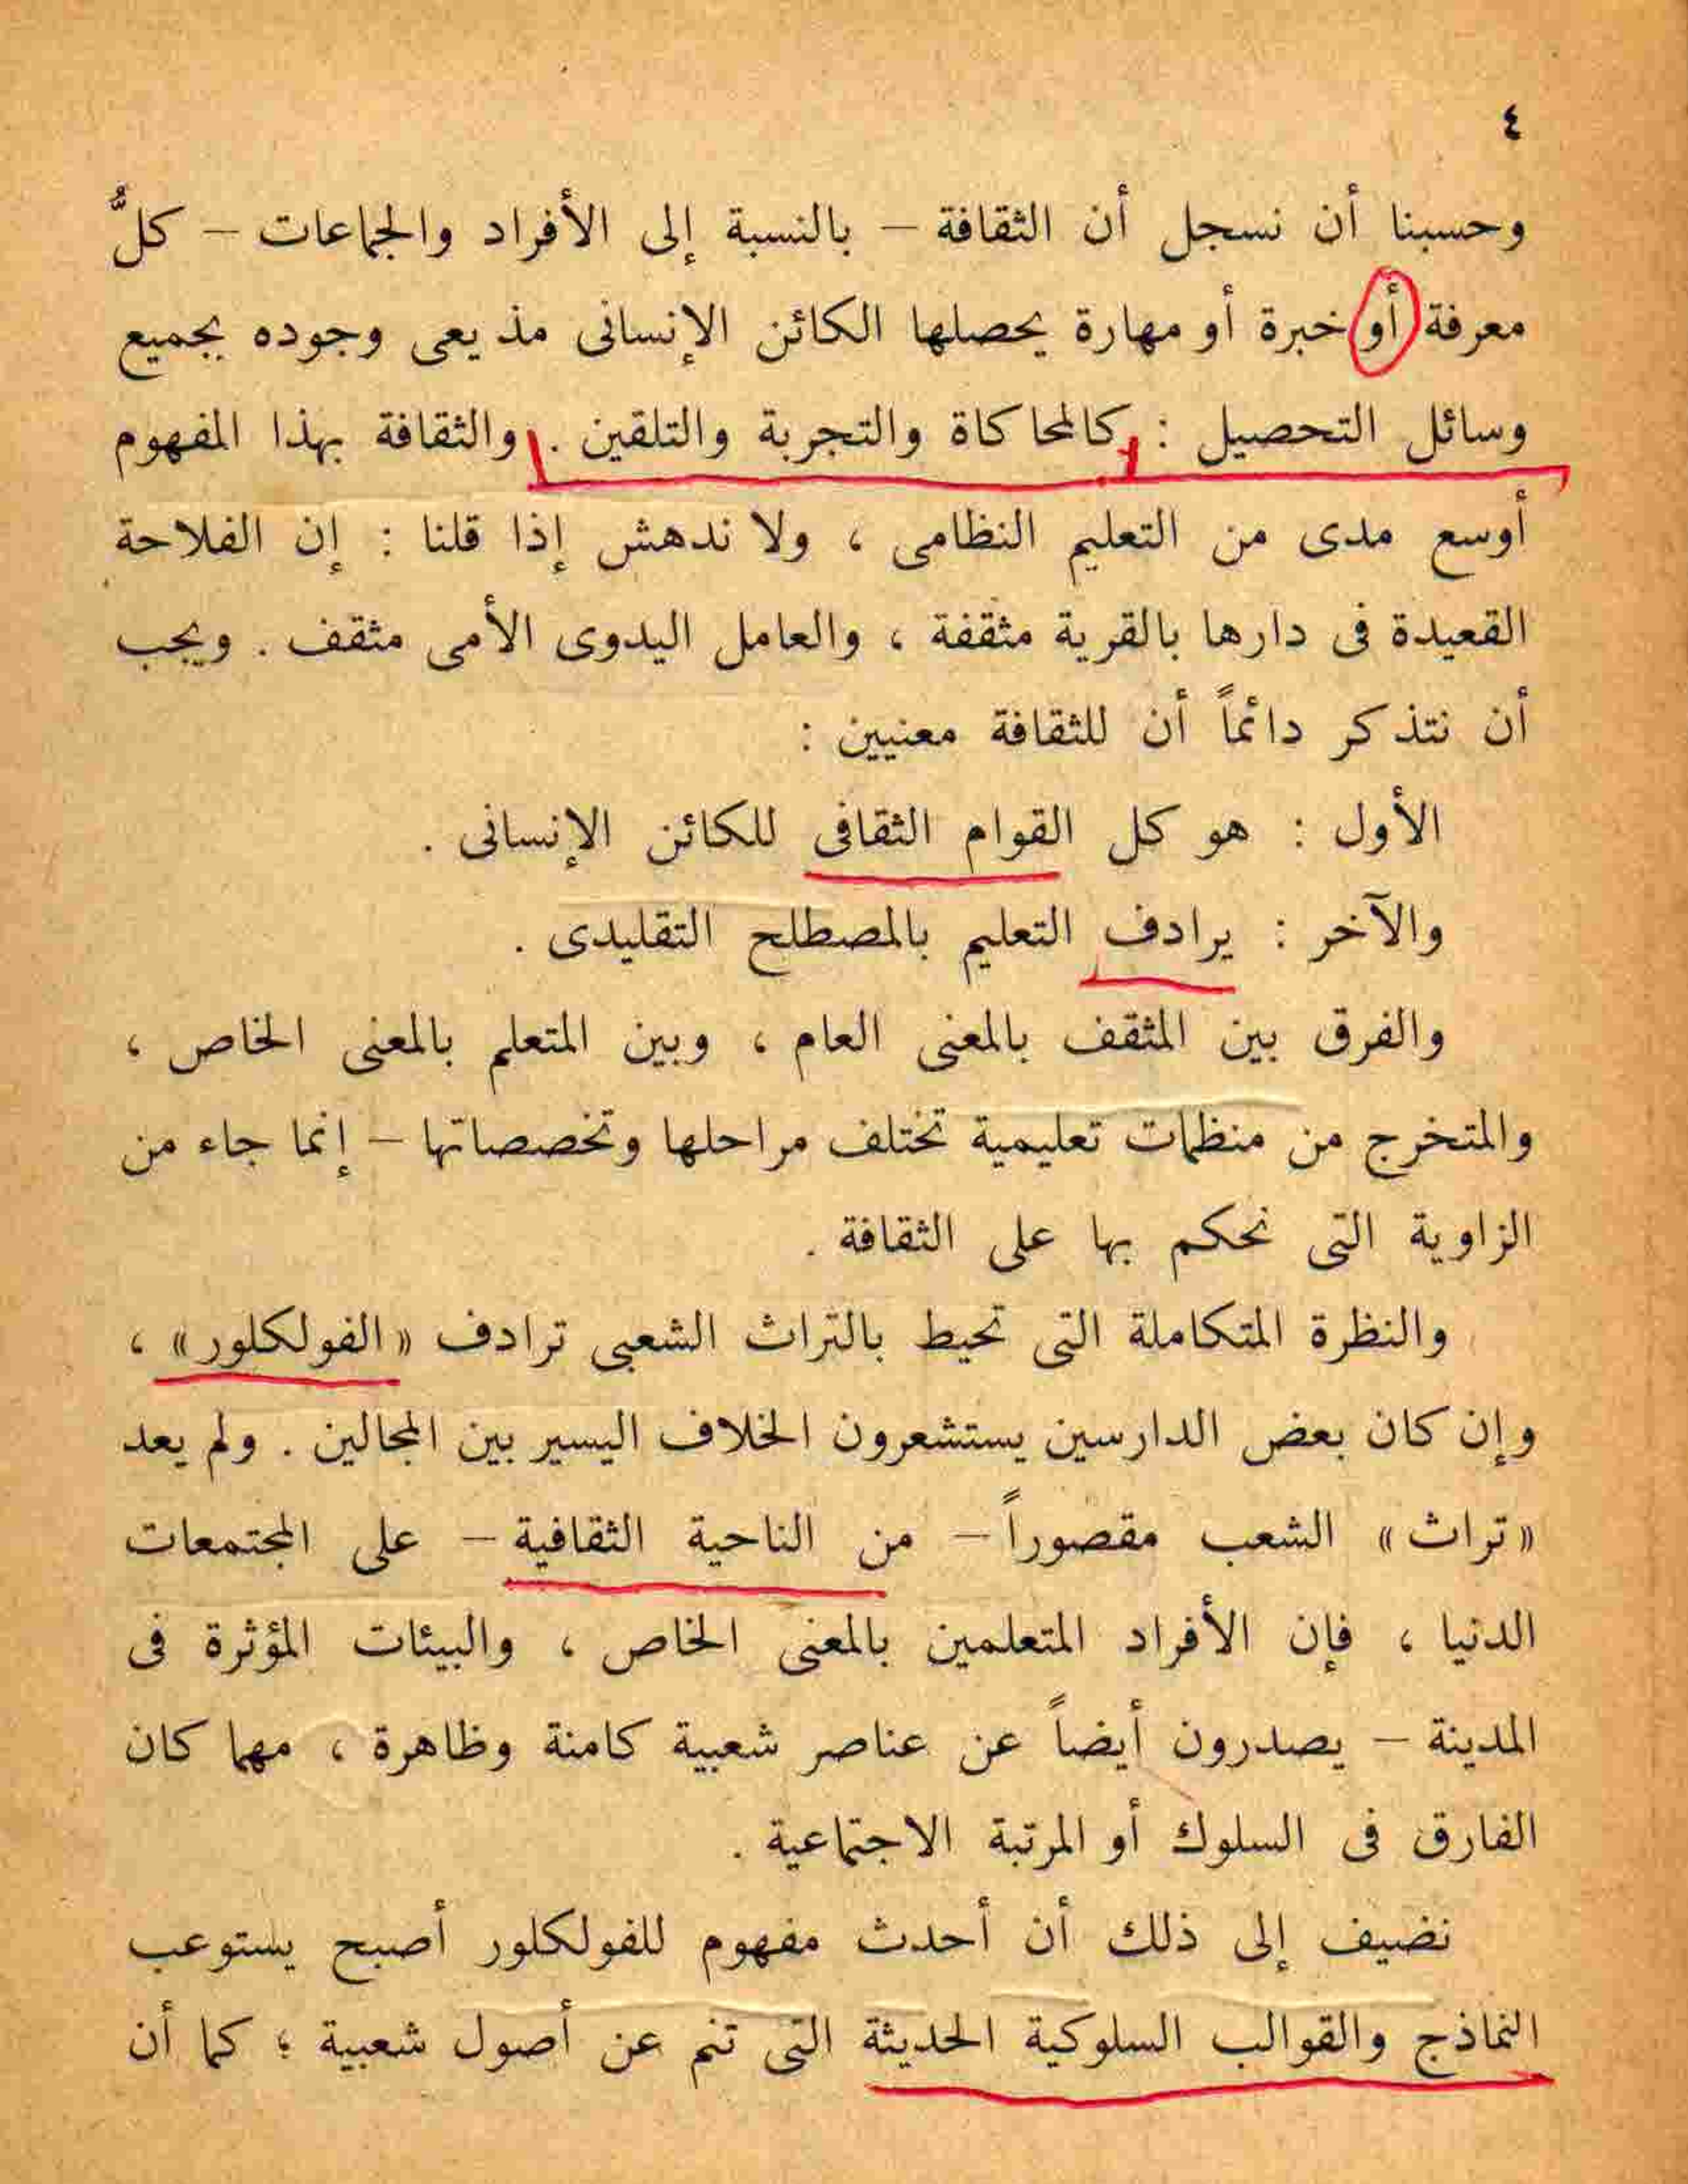 ٤
وحسبنا أن نسجل أن الثقافة – بالنسبة إلى الأفراد والجماعات – كلُّ
معرفة أو خبرة أو مهارة يحصلها الكائن الإنسانى مذ يعى وجوده بجميع
وسائل التحصيل : كالمحاكاة والتجربة والتلقين . والثقافة بهذا المفهوم
أوسع مدى من التعليم النظامى ، ولا ندهش إذا قلنا : إن الفلاحة
القعيدة فى دارها بالقرية مثقفة ، والعامل اليدوى الأمى مثقف . ويجب
أن نتذكر دائماً أن للثقافة معنيين :
الأول : هو كل القوام الثقافى للكائن الإنسانى .
والآخر : يرادف التعليم بالمصطلح التقليدى .
والفرق بين المثقف بالمعنى العام ، وبين المتعلم بالمعنى الخاص ،
والمتخرج من منظمات تعليمية تختلف مراحلها وتخصصاتها – إنما جاء من
الزاوية التى نحكم بها على الثقافة .
والنظرة المتكاملة التى تحيط بالتراث الشعبى ترادف «الفولكلور» ،
وإن كان بعض الدارسين يستشعرون الخلاف اليسير بين المجالين . ولم يعد
«تراث» الشعب مقصوراً – من الناحية الثقافية – على المجتمعات
الدنيا ، فإن الأفراد المتعلمين بالمعنى الخاص ، والبيئات المؤثرة فى
المدينة – يصدرون أيضاً عن عناصر شعبية كامنة وظاهرة ، مهما كان
الفارق فى السلوك أو المرتبة الاجتماعية .
نضيف إلى ذلك أن أحدث مفهوم للفولكلور أصبح يستوعب
النماذج والقوالب السلوكية الحديثة التى تنم عن أصول شعبية ؛ كما أن